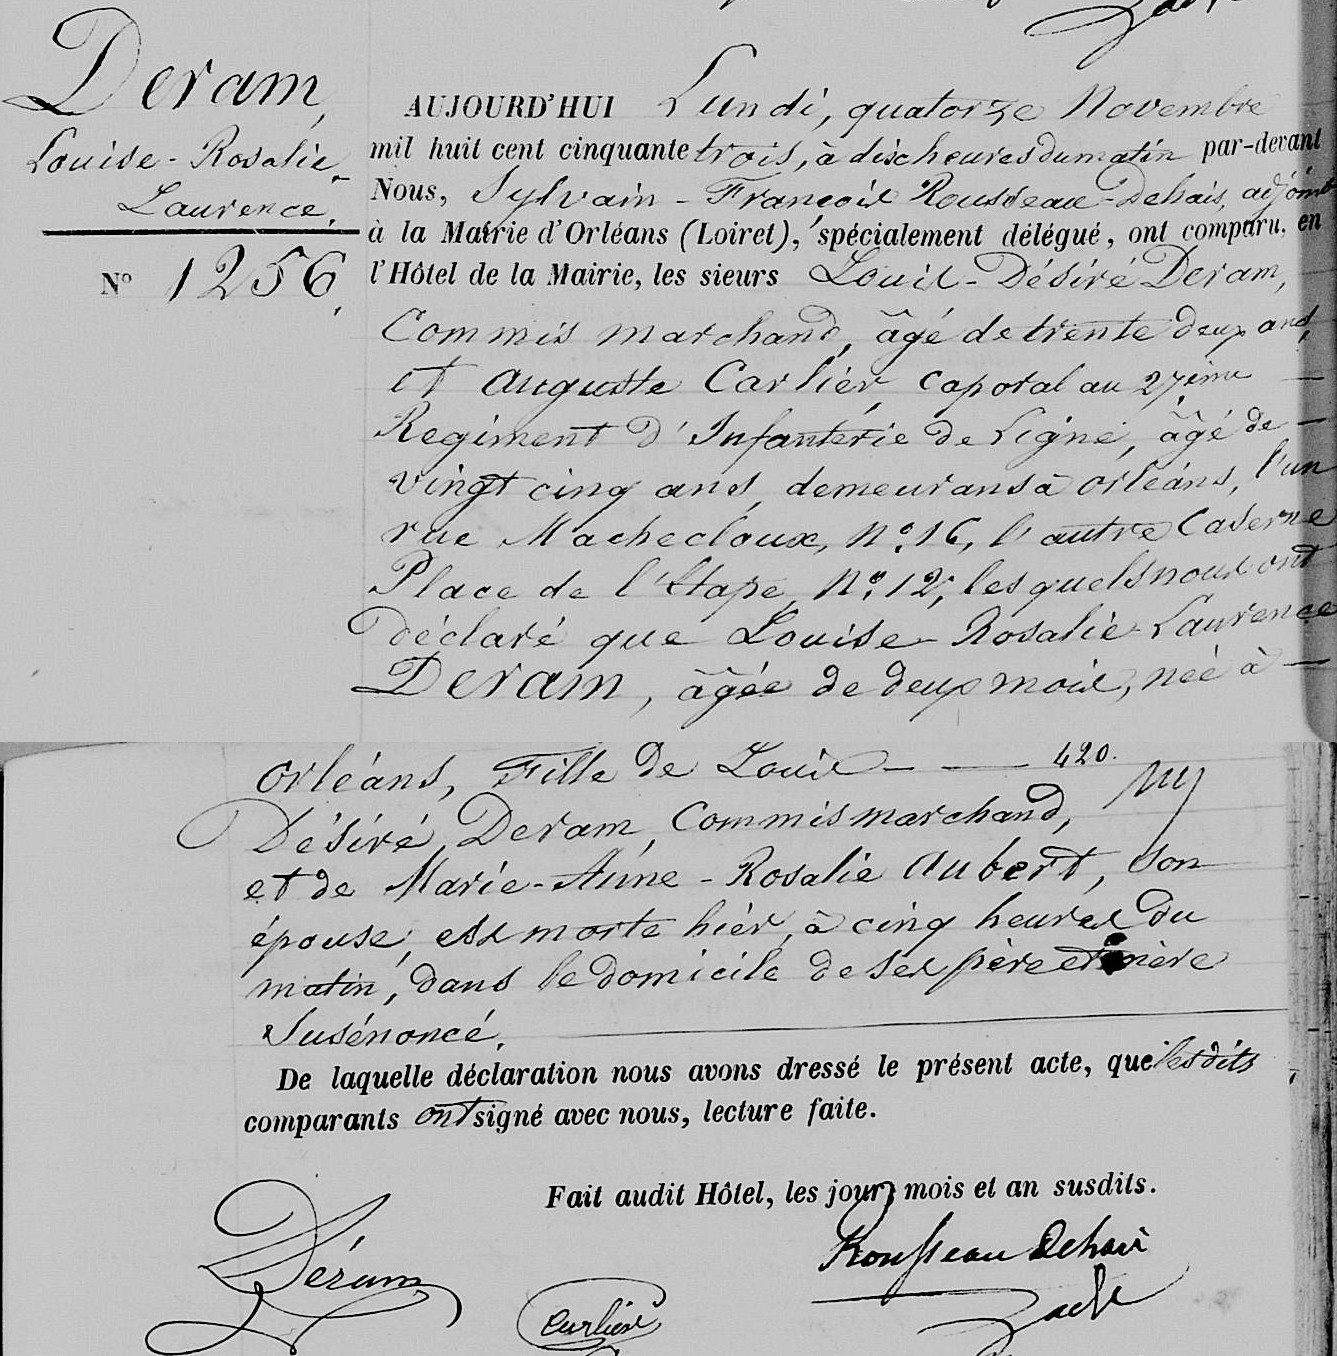 Deram,
Louise-Rosalie-
Laurence.
N° 1256.
AUJOURD'HUI Lundi, quatorze Novembre
mil huit cent cinquante trois, à dix heures du matin par-devant
Nous, Sylvain-François Rousseau-Dehais, adjoint
à la Mairie d'Orléans (Loiret), spécialement délégué, ont comparu, en
l'Hôtel de la Mairie, les sieurs Louis-Désiré Deram,
Commis marchand, âgé de trente deux ans,
et Auguste Carlier, caporal au 27ème
Regiment d'Infanterie de Ligne, âgé de
vingt cinq ans, demeurans à Orléans, l'un
rue Machecloux, N°. 16, l'autre Caserne
Place de l'Etape, N°. 12; lesquels nous ont
déclaré que Louise-Rosalie-Laurence
Deram, âgée de deux mois, née à
420.
Orléans, Fille de Louis
Désiré Deram, Commis marchand,
et de Marie-Aimée-Rosalie Aubert, son
épouse, est morte hier, à cinq heures du
matin, dans le domicile de ses père et mère
susénoncé.
De laquelle déclaration nous avons dressé le présent acte, que lesdits
comparants ont signé avec nous, lecture faite.
Fait audit Hôtel, les jour, mois et an susdits.
Rousseau Dehais
Déram
Carlier